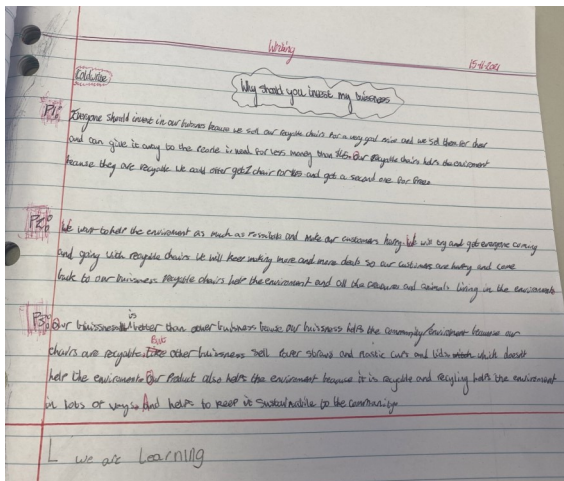 Writing
15-11-2021
Coldwrite
Why should you invest my buissness
P1:
Everyone should invest in our buisness because we sell our recycable chairs for a very good price and we sell them for cheap
and can give it away to the people in need for less money than Our recycable chairs helps the enviroment
because they are recycable we also offer get 1 chair for and get a second one for free.
P2:
We want to help the enviroment as much as Possible and make our customers happy. We will try and get everyone coming
and going with recycable chairs We will keep making more and more deals so our customers are happy and come
back to our buissness. Recycable chairs help the enviroment and all the creatures and animals living in the enviroments
P3:
Our buissness is better than other buisness because our buissness helps the community/enviroment because our
chairs are recycable. But other buissness sell Paper straws and plastic cups and lids which doesn't
help the enviroment. Our Product also helps the enviroment because it is recycable and recycling helps the enviroment
in lots of ways. And helps to keep it sustainable to the community.
L we are Learning